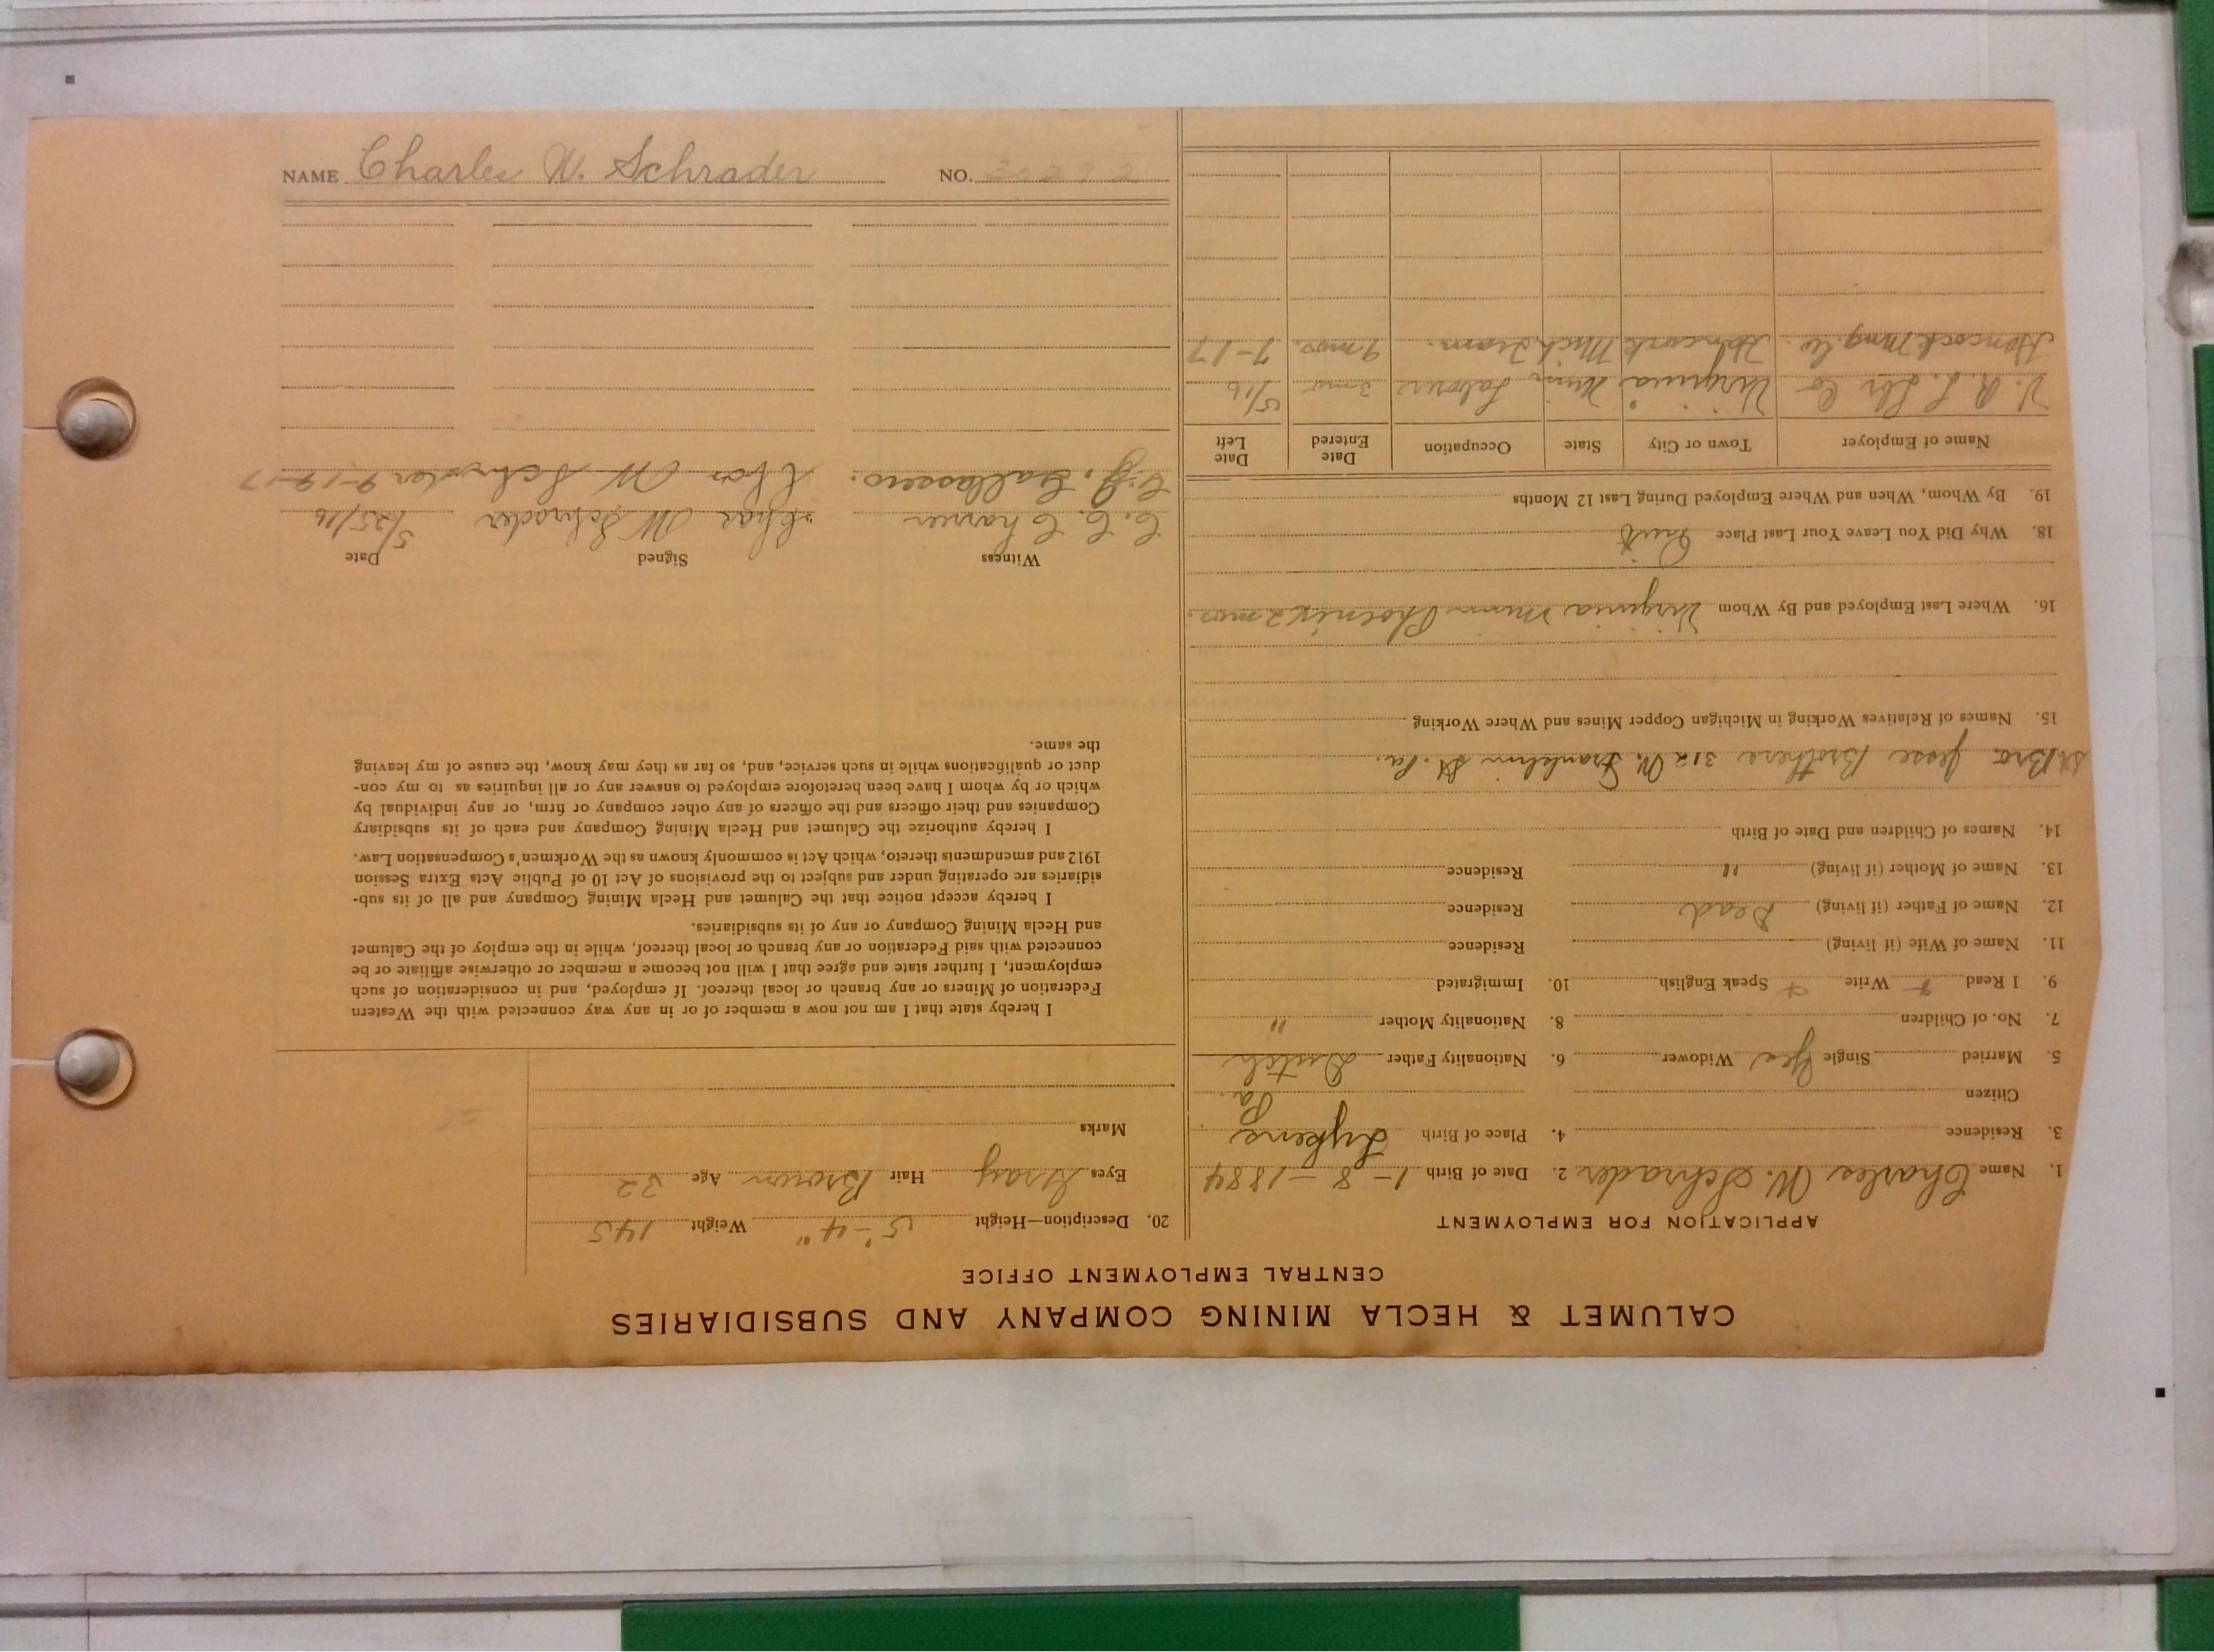 CALUMET & HECLA MINING COMPANY AND SUBSIDIARIES
CENTRAL EMPLOYMENT OFFICE
APPLICATION FOR EMPLOYMENT
1. Name Charles W. Schrader 2. Date of Birth 1-8-1884
3. Residence 4. Place of Birth Lykens
Citizen Pa.
5. Married Single Yes Widower 6. Nationality Father Dutch
7. No. of Children 8. Nationality Mother "
9. I Read + Write + Speak English 10. Immigrated
11. Name of Wife (if living) Residence
12. Name of Father (if living) Dead Residence
13. Name of Mother (if living) " Residence
14. Names of Children and Date of Birth
Bro Jesse Brothers 312 N. Franklin St. Pa.
15. Names of Relatives Working in Michigan Copper Mines and Where Working
16. Where Last Employed and By Whom Virginia Minn Phoenix 2 mos.
18. Why Did You Leave Your Last Place Quit
19. By Whom, When and Where Employed During Last 12 Months
Name of Employer Town or City State Occupation Date Entered Date Left
V. R. L. Lbr Co Virginia Minn Laborer 3 mos 5/16
Hancock Mng. Co. Hancock Mich Tram. 9 mos. 7-17
20. Description—Height 5'-4" Weight 145
Eyes Gray Hair Brown Age 32
Marks
I hereby state that I am not now a member of or in any way connected with the Western
Federation of Miners or any branch or local thereof. If employed, and in consideration of such
employment, I further state and agree that I will not become a member or otherwise affiliate or be
connected with said Federation or any branch or local thereof, while in the employ of the Calumet
and Hecla Mining Company or any of its subsidiaries.
I hereby accept notice that the Calumet and Hecla Mining Company and all of its sub-
sidiaries are operating under and subject to the provisions of Act 10 of Public Acts Extra Session
1912 and amendments thereto, which Act is commonly known as the Workmen's Compensation Law.
I hereby authorize the Calumet and Hecla Mining Company and each of its subsidiary
Companies and their officers and the officers of any other company or firm, or any individual by
which or by whom I have been heretofore employed to answer any or all inquiries as to my con-
duct or qualifications while in such service, and, so far as they may know, the cause of my leaving
the same.
Witness Signed Date
C. C. Charrier Chas W Schrader 5/25/16
C. J. Gallasero. Chas W Schrader 9-19-17
NAME Charles W. Schrader NO. 30292